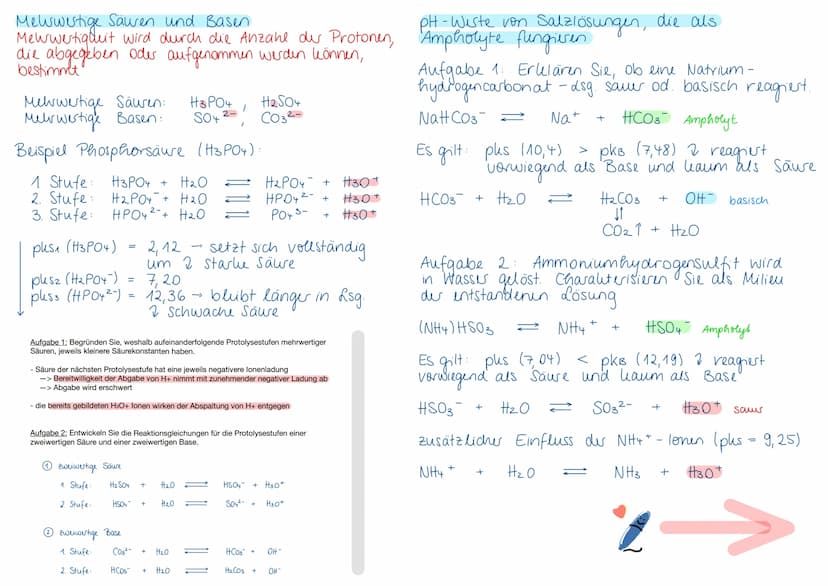 Mehrwertige Säuren und Basen
Mehrwertigkeit wird durch die Anzahl der Protonen,
die abgegeben oder aufgenommen werden können,
bestimmt
Mehrwertige Säuren: H3PO4, H2SO4
Mehrwertige Basen: SO4²⁻, CO3²⁻
Beispiel Phosphorsäure (H3PO4):
1. Stufe: H3PO4 + H2O ⇌ H2PO4⁻ + H3O⁺
2. Stufe: H2PO4⁻ + H2O ⇌ HPO4²⁻ + H3O⁺
3. Stufe: HPO4²⁻ + H2O ⇌ PO4³⁻ + H3O⁺
pks1 (H3PO4) = 2,12 → setzt sich vollständig
um ↯ starke Säure
pks2 (H2PO4⁻) = 7,20
pks3 (HPO4²⁻) = 12,36 → bleibt länger in Lsg.
↯ schwache Säure
Aufgabe 1: Begründen Sie, weshalb aufeinanderfolgende Protolysestufen mehrwertiger
Säuren, jeweils kleinere Säurekonstanten haben.
- Säure der nächsten Protolysestufe hat eine jeweils negativere Ionenladung
—> Bereitwilligkeit der Abgabe von H+ nimmt mit zunehmender negativer Ladung ab
—> Abgabe wird erschwert
- die bereits gebildeten H3O+ Ionen wirken der Abspaltung von H+ entgegen
Aufgabe 2: Entwickeln Sie die Reaktionsgleichungen für die Protolysestufen einer
zweiwertigen Säure und einer zweiwertigen Base.
① zweiwertige Säure
1. Stufe: H2SO4 + H2O ⇌ HSO4⁻ + H3O⁺
2. Stufe: HSO4⁻ + H2O ⇌ SO4²⁻ + H3O⁺
② zweiwertige Base
1. Stufe: CO3²⁻ + H2O ⇌ HCO3⁻ + OH⁻
2. Stufe: HCO3⁻ + H2O ⇌ H2CO3 + OH⁻
pH-Werte von Salzlösungen, die als
Ampholyte fungieren
Aufgabe 1: Erklären Sie, ob eine Natrium-
hydrogencarbonat-Lsg. sauer od. basisch reagiert.
NaHCO3⁻ ⇌ Na⁺ + HCO3⁻ Ampholyt
Es gilt: pks (10,4) > pkB (7,48) ↯ reagiert
vorwiegend als Base und kaum als Säure
HCO3⁻ + H2O ⇌ H2CO3 + OH⁻ basisch
⇅
CO2↑ + H2O
Aufgabe 2: Ammoniumhydrogensulfit wird
in Wasser gelöst. Charakterisieren Sie als Milieu
der entstandenen Lösung
(NH4)HSO3 ⇌ NH4⁺ + HSO4⁻ Ampholyt
Es gilt: pks (7,04) < pkB (12,19) ↯ reagiert
vorwiegend als Säure und kaum als Base
HSO3⁻ + H2O ⇌ SO3²⁻ + H3O⁺ sauer
zusätzlicher Einfluss der NH4⁺-Ionen (pks = 9,25)
NH4⁺ + H2O ⇌ NH3 + H3O⁺